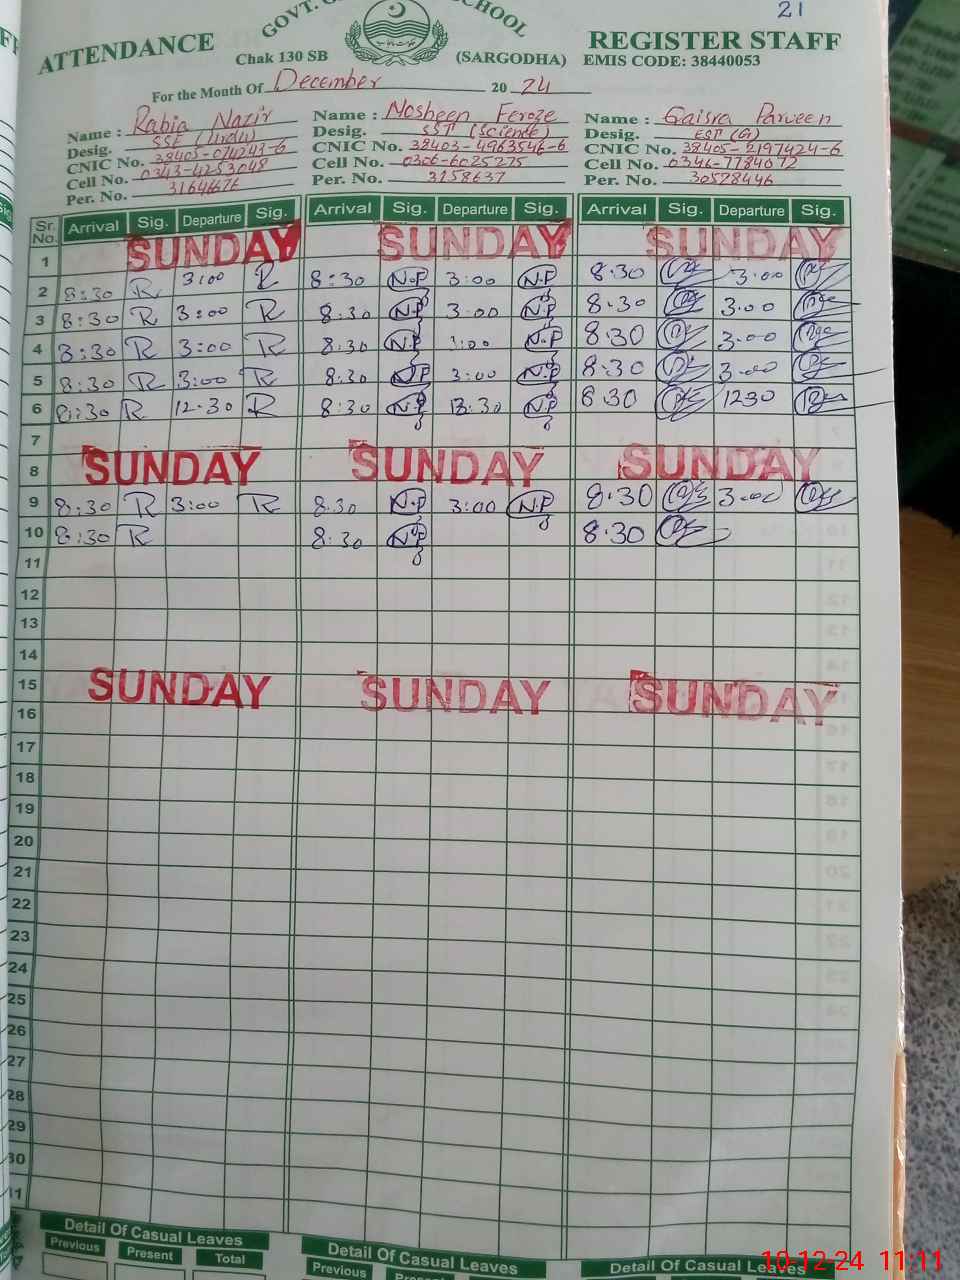 21
GOVT. G SCHOOL
ATTENDANCE Chak 130 SB (SARGODHA) REGISTER STAFF
EMIS CODE: 38440053
For the Month Of December 20 24
Name : Rabia Nazir Name : Nosheen Feroze Name : Gaisra Parveen
Desig. SSE (Urdu) Desig. SST (Science) Desig. EST (G)
CNIC No. CNIC No. 38403-4963546-6 CNIC No. 38405-2197424-6
Cell No. 0343-4253048 Cell No. 0306-6025275 Cell No. 0346-7784072
Per. No. 3164676 Per. No. 3158637 Per. No. 30528446
Sr. No. Arrival Sig. Departure Sig. Arrival Sig. Departure Sig. Arrival Sig. Departure Sig.
1 SUNDAY SUNDAY SUNDAY
2 8:30 R 3:00 R 8:30 N.F 3:00 N.F 8.30 3.00
3 8:30 R 3:00 R 8:30 N.F 3:00 N.F 8.30 3.00
4 8:30 R 3:00 R 8:30 N.F 3:00 N.F 8.30 3.00
5 8:30 R 3:00 R 8:30 N.F 3:00 N.F 8.30 3.00
6 8:30 R 12:30 R 8:30 N.F N.F 8.30 1230
7
8 SUNDAY SUNDAY SUNDAY
9 8:30 R 3:00 R 8:30 N.F 3:00 N.F 8.30 3.00
10 8:30 R 8:30 N.F 8.30
11
12
13
14
15 SUNDAY SUNDAY SUNDAY
16
17
18
19
20
21
22
23
24
25
26
27
28
29
30
Detail Of Casual Leaves Detail Of Casual Leaves Detail Of Casual Leaves
Previous Present Total Previous Present
10-12-24 11:11